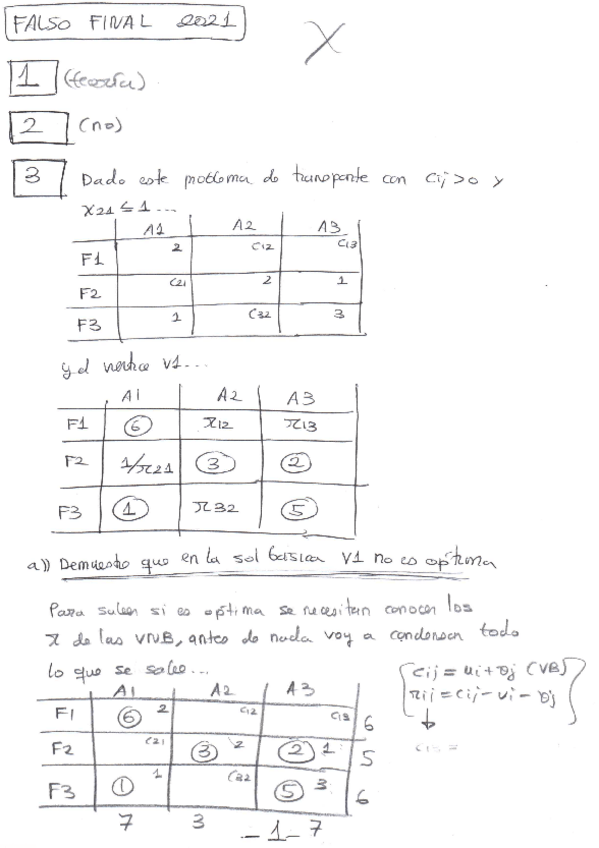 FALSO FINAL 2021
X
1 (teoría)
2 (no)
3 Dado este problema de transporte con cij > 0 y
x21 ≤ 1 ...
A1 A2 A3
F1 2 C12 C13
F2 C21 2 1
F3 1 C32 3
y el vertice V1...
A1 A2 A3
F1 6 π12 π13
F2 1/π21 3 2
F3 1 π32 5
a)) Demuestro que en la sol basica V1 no es optima
Para saber si es optima se necesitan conocer los
π de las VNB, antes de nada voy a condensar todo
lo que se sabe...
cij = ui + vj (VB)
πij = cij - ui - vj
A1 A2 A3
F1 6 2 C12 C13 6
F2 C21 3 2 2 1 5
F3 1 1 C32 5 3 6
7 3 7
- 1 -